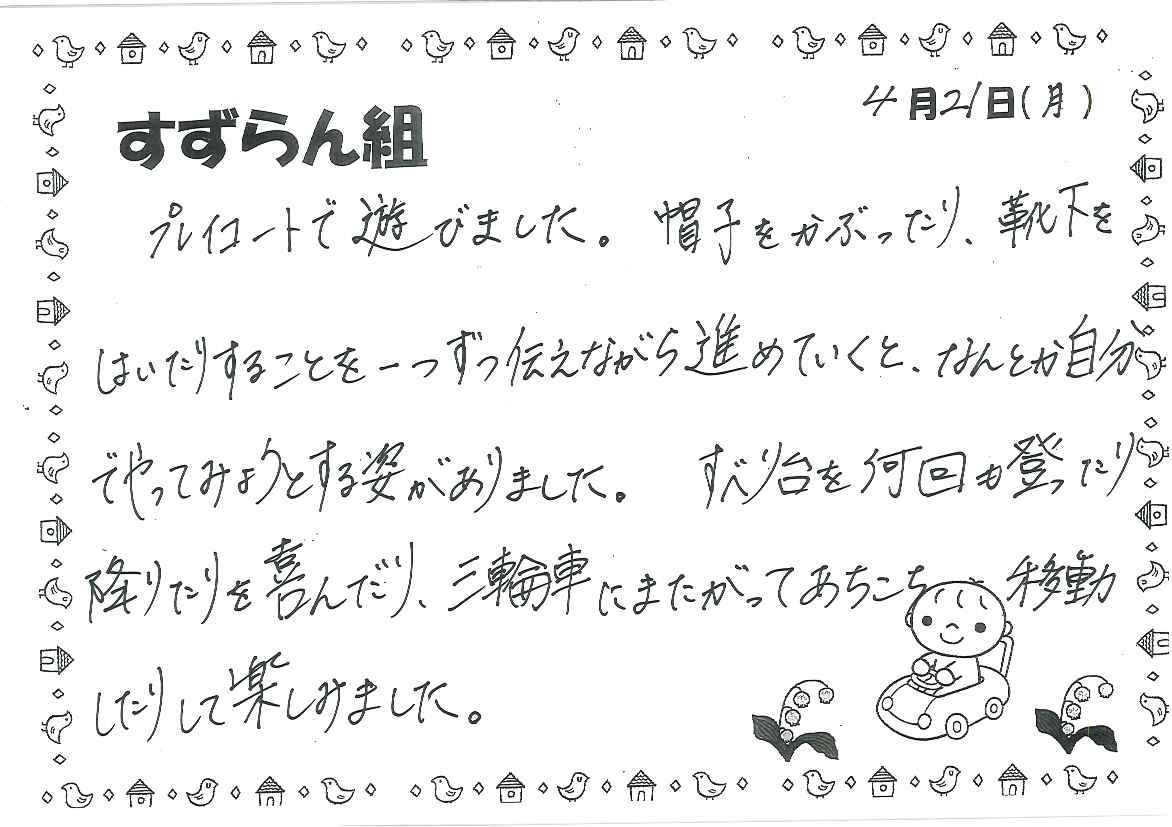 4月21日(月)
すずらん組
プレイコートで遊びました。 帽子をかぶったり、靴下を
はいたりすることを一つずつ伝えながら進めていくと、なんとか自分
でやってみようとする姿がありました。 すべり台を何回も登ったり
降りたりを喜んだり、三輪車にまたがってあちこち 移動
したりして楽しみました。